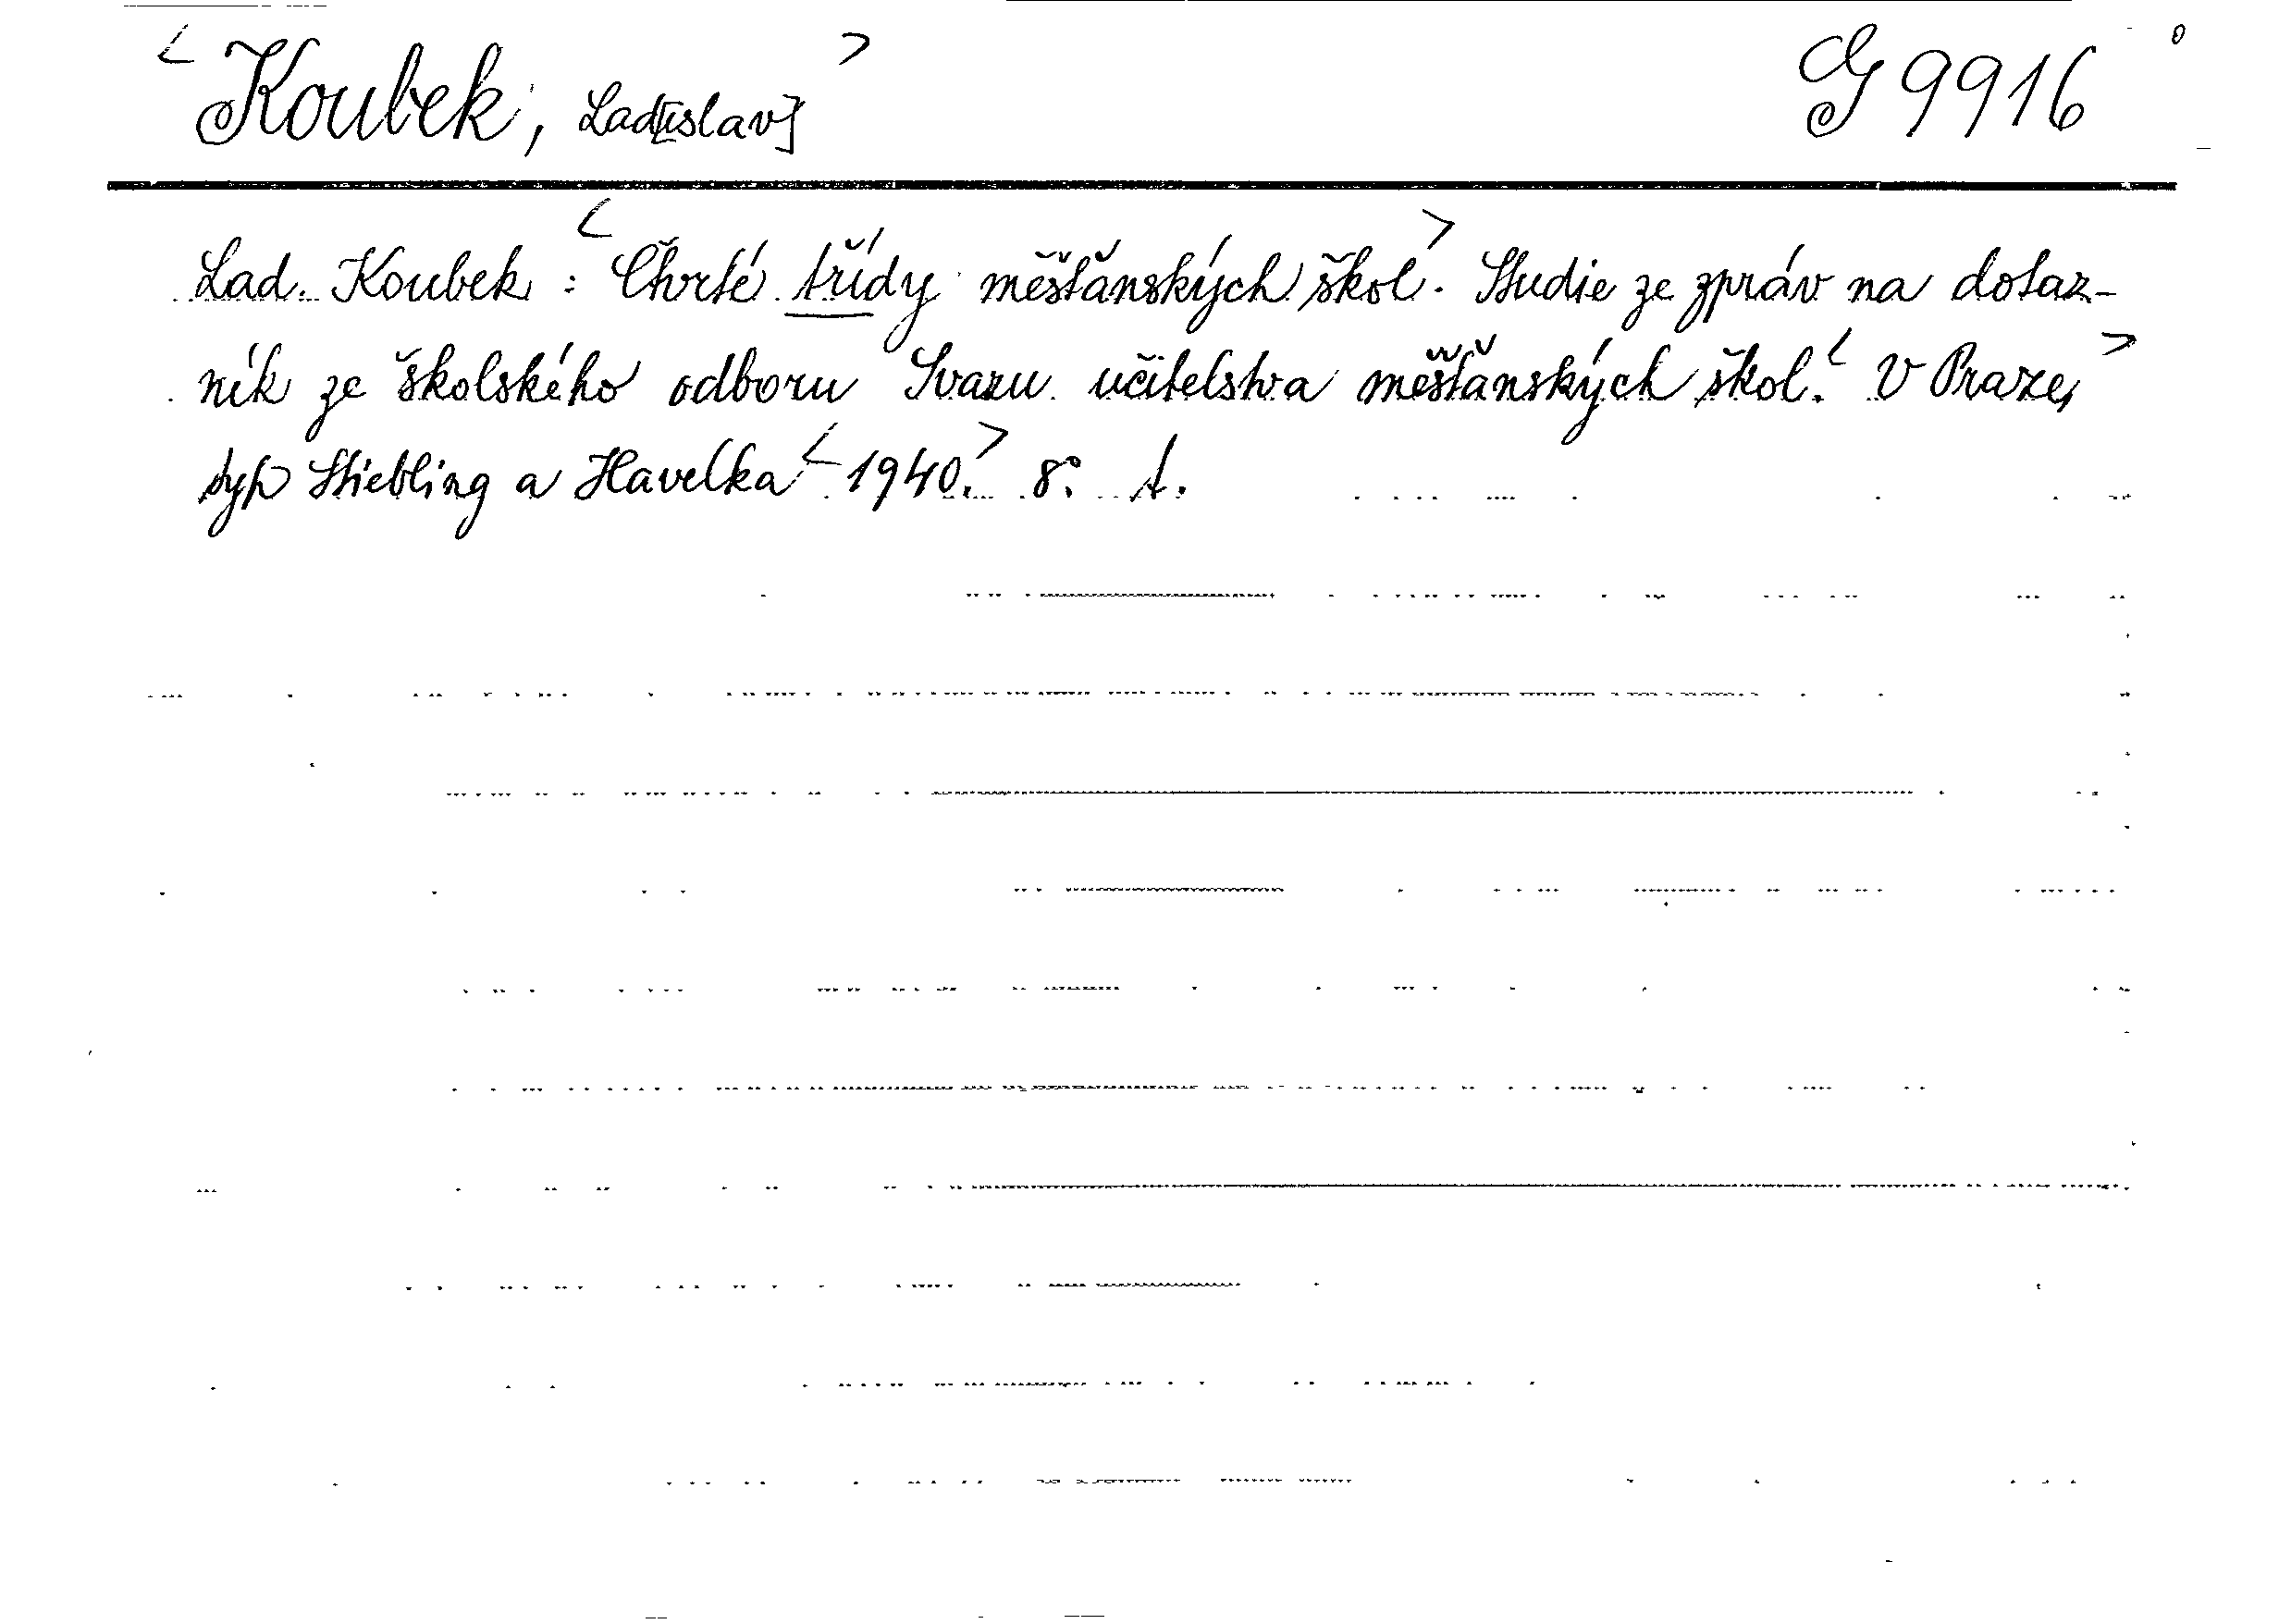 <Koubek, Lad[islav]> G 9916
Lad. Koubek : <Čtvrté třídy měšťanských škol>. Studie ze zpráv na dotaz-
ník ze školského odboru Svazu učitelstva měšťanských škol. <V Praze,>
typ Stiebling a Havelka <1940.> 8°. 1.